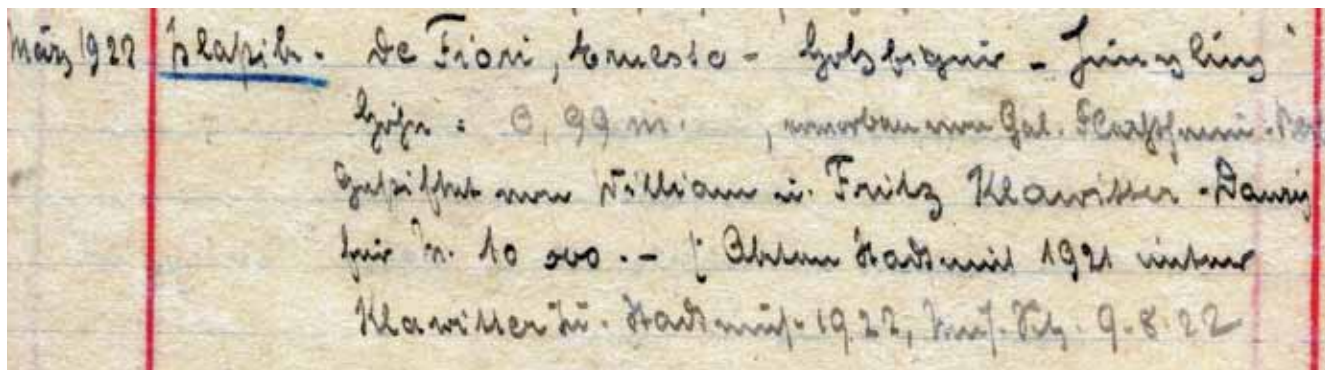 März 1922 Plastik. De Fiori, Ernesto - Holzfigur - Jüngling
Höhe : 0,99 m. , erworben von Gal. Flechtheim -
Gestiftet von William u. Fritz Klawitter - Danzig
für M. 10 000.- (: Akten Stadtmus 1921 unter
Klawitter u. Stadtmus. 1922, 9.8.22